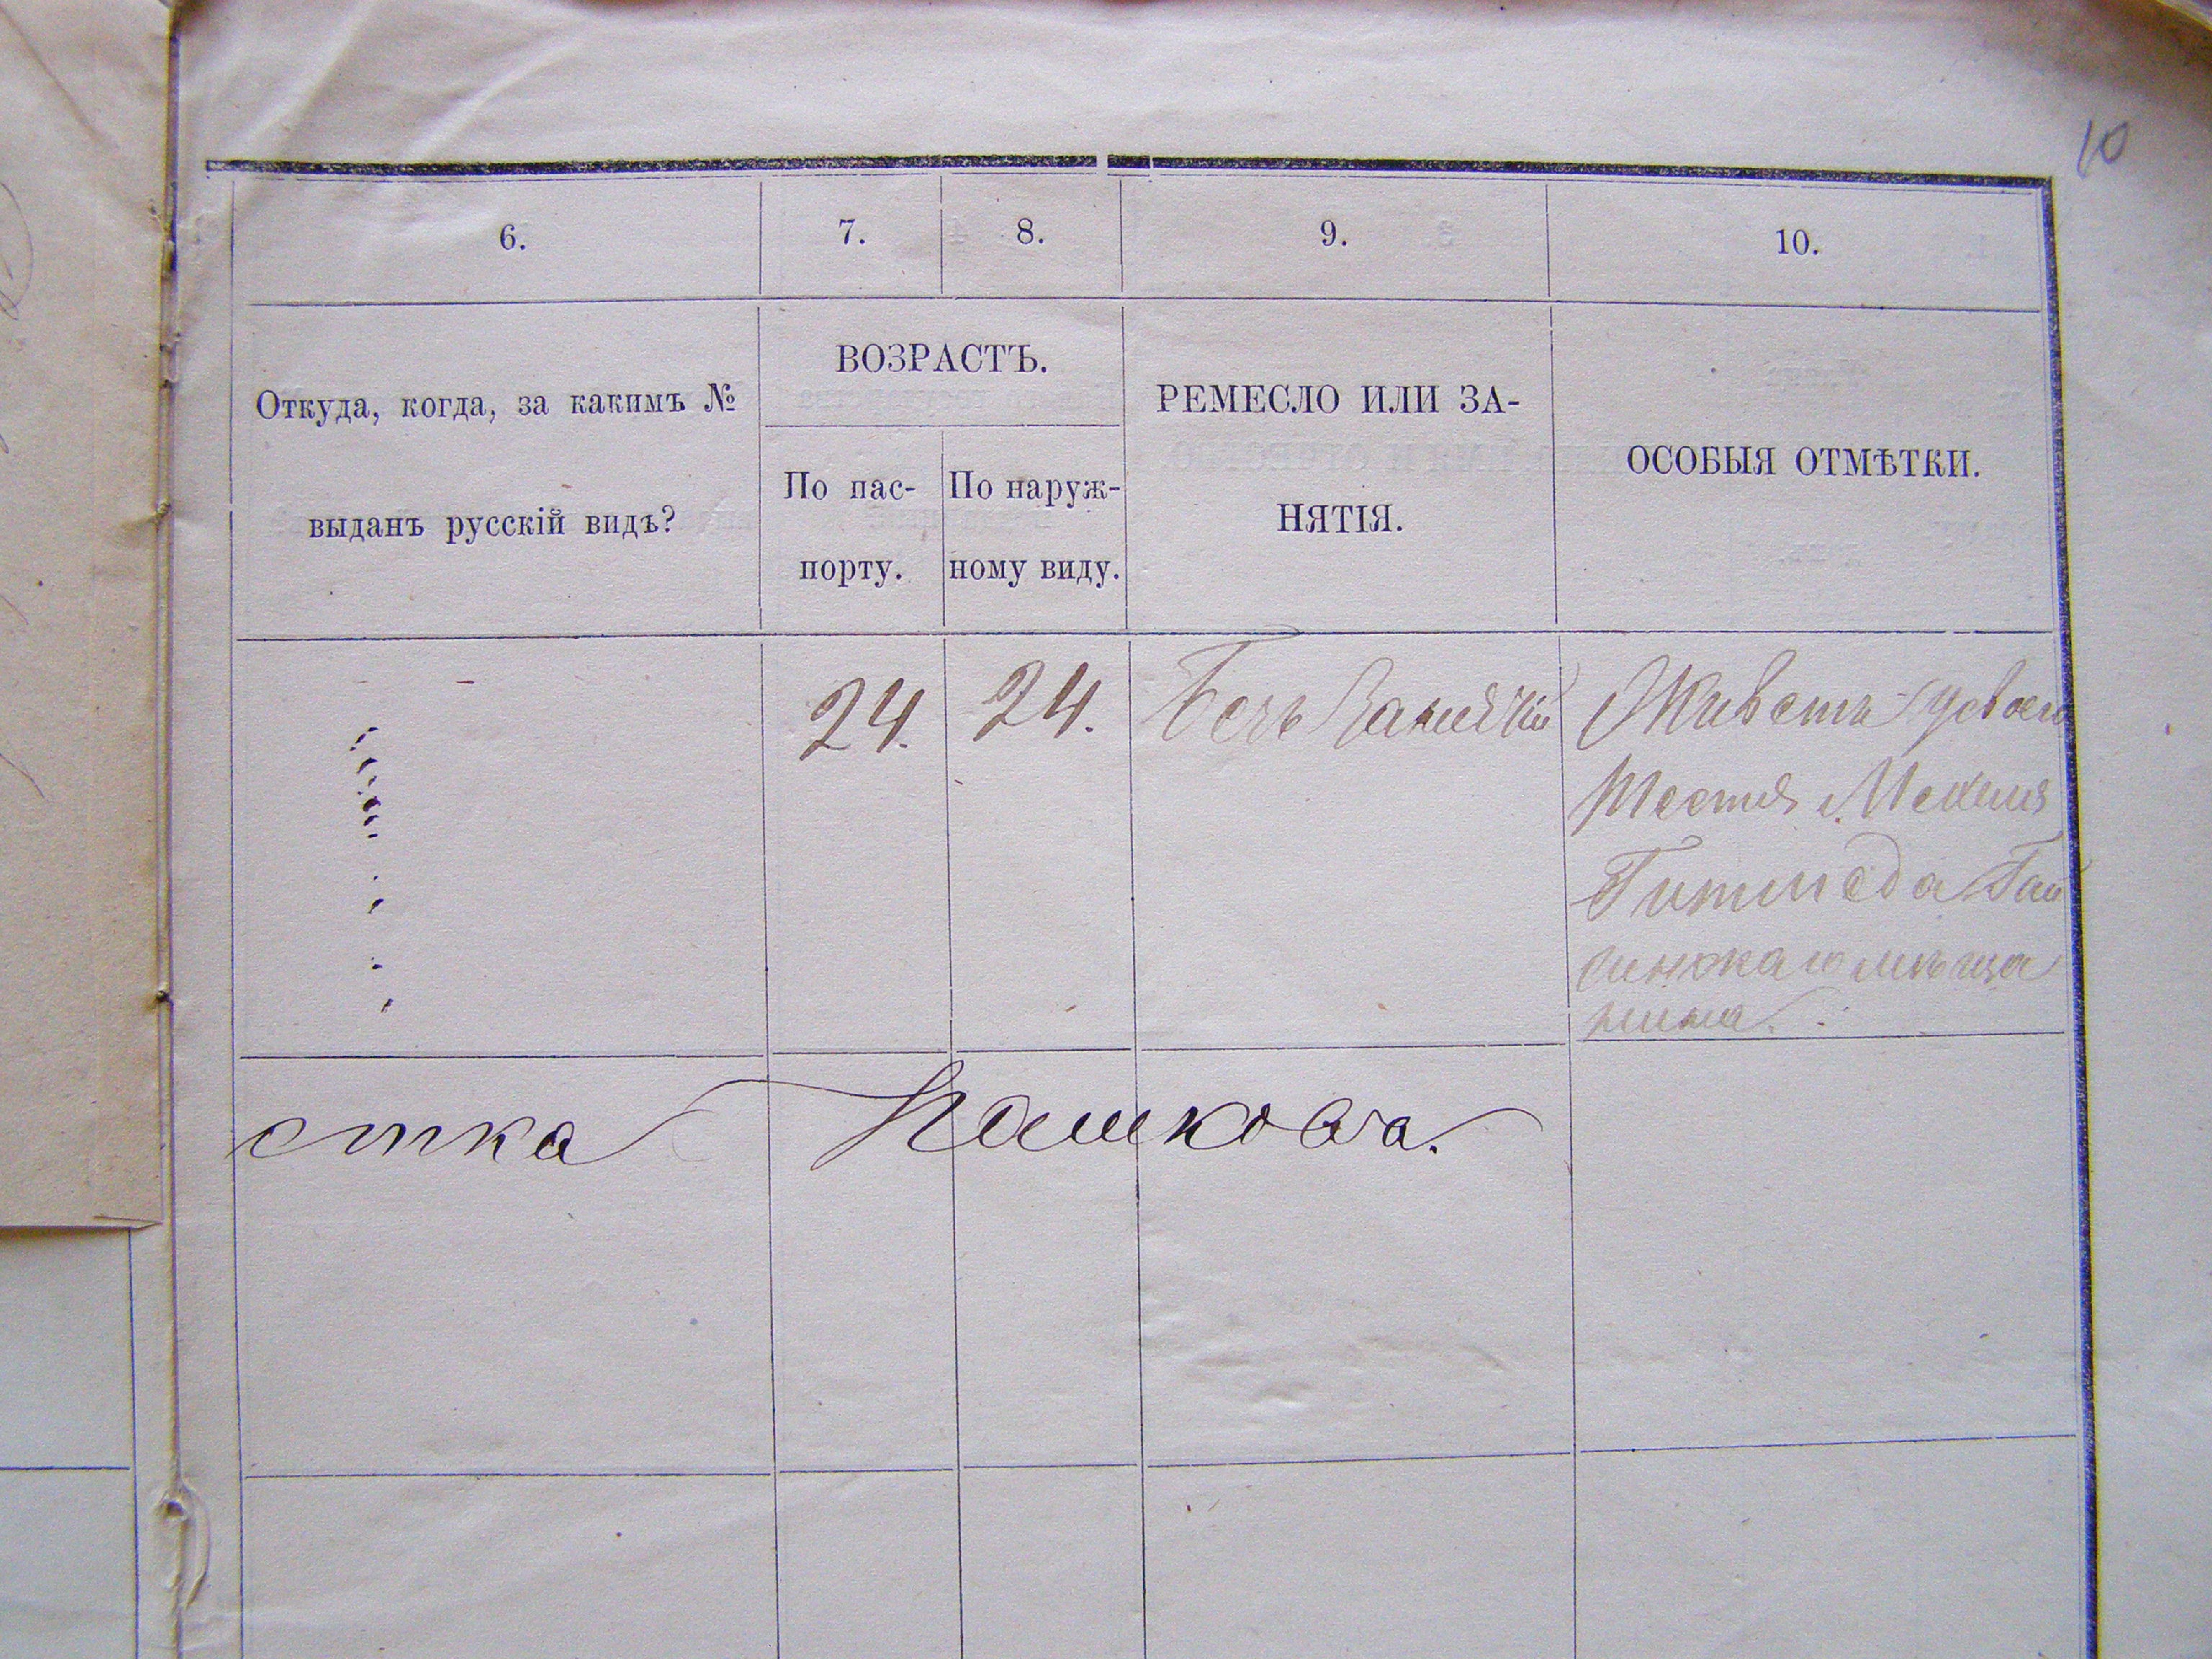 10
6. 7. 8. 9. 10.
Откуда, когда, за какимъ №
выданъ русскій видъ?
ВОЗРАСТЪ.
По пас-
порту.
По наруж-
ному виду.
РЕМЕСЛО ИЛИ ЗА-
НЯТІЯ.
ОСОБЫЯ ОТМѢТКИ.
24. 24. Безъ занятій
Живетъ у своего
тестя
Гай
синскаго мѣща
нина.
стка Пашкова.